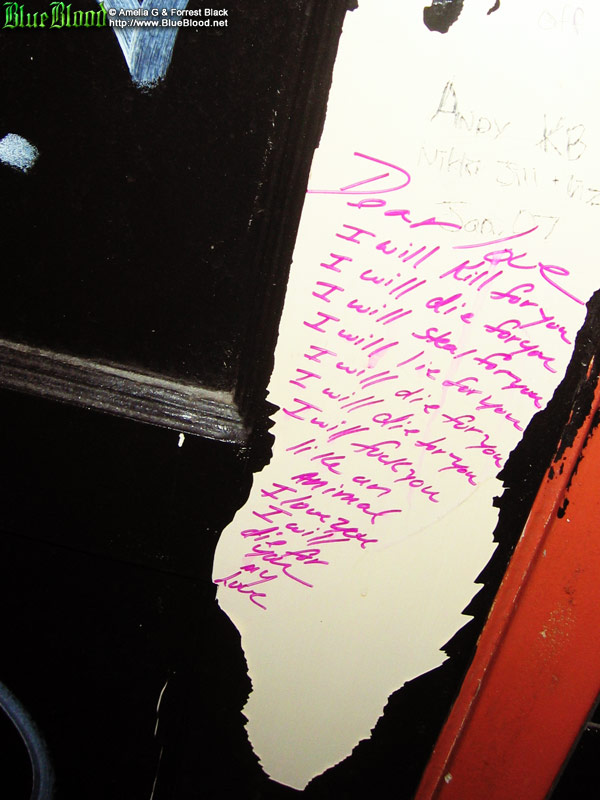 BlueBlood © Amelia G & Forrest Black
http://www.BlueBlood.net
Off
Andy KB
Nikki Jill +
Dear love
I will kill for you
I will die for you
I will steal for you
I will lie for you
I will die for you
I will die for you
I will fuck you
like an
Animal
I love you
I will
die for
you
my
Love